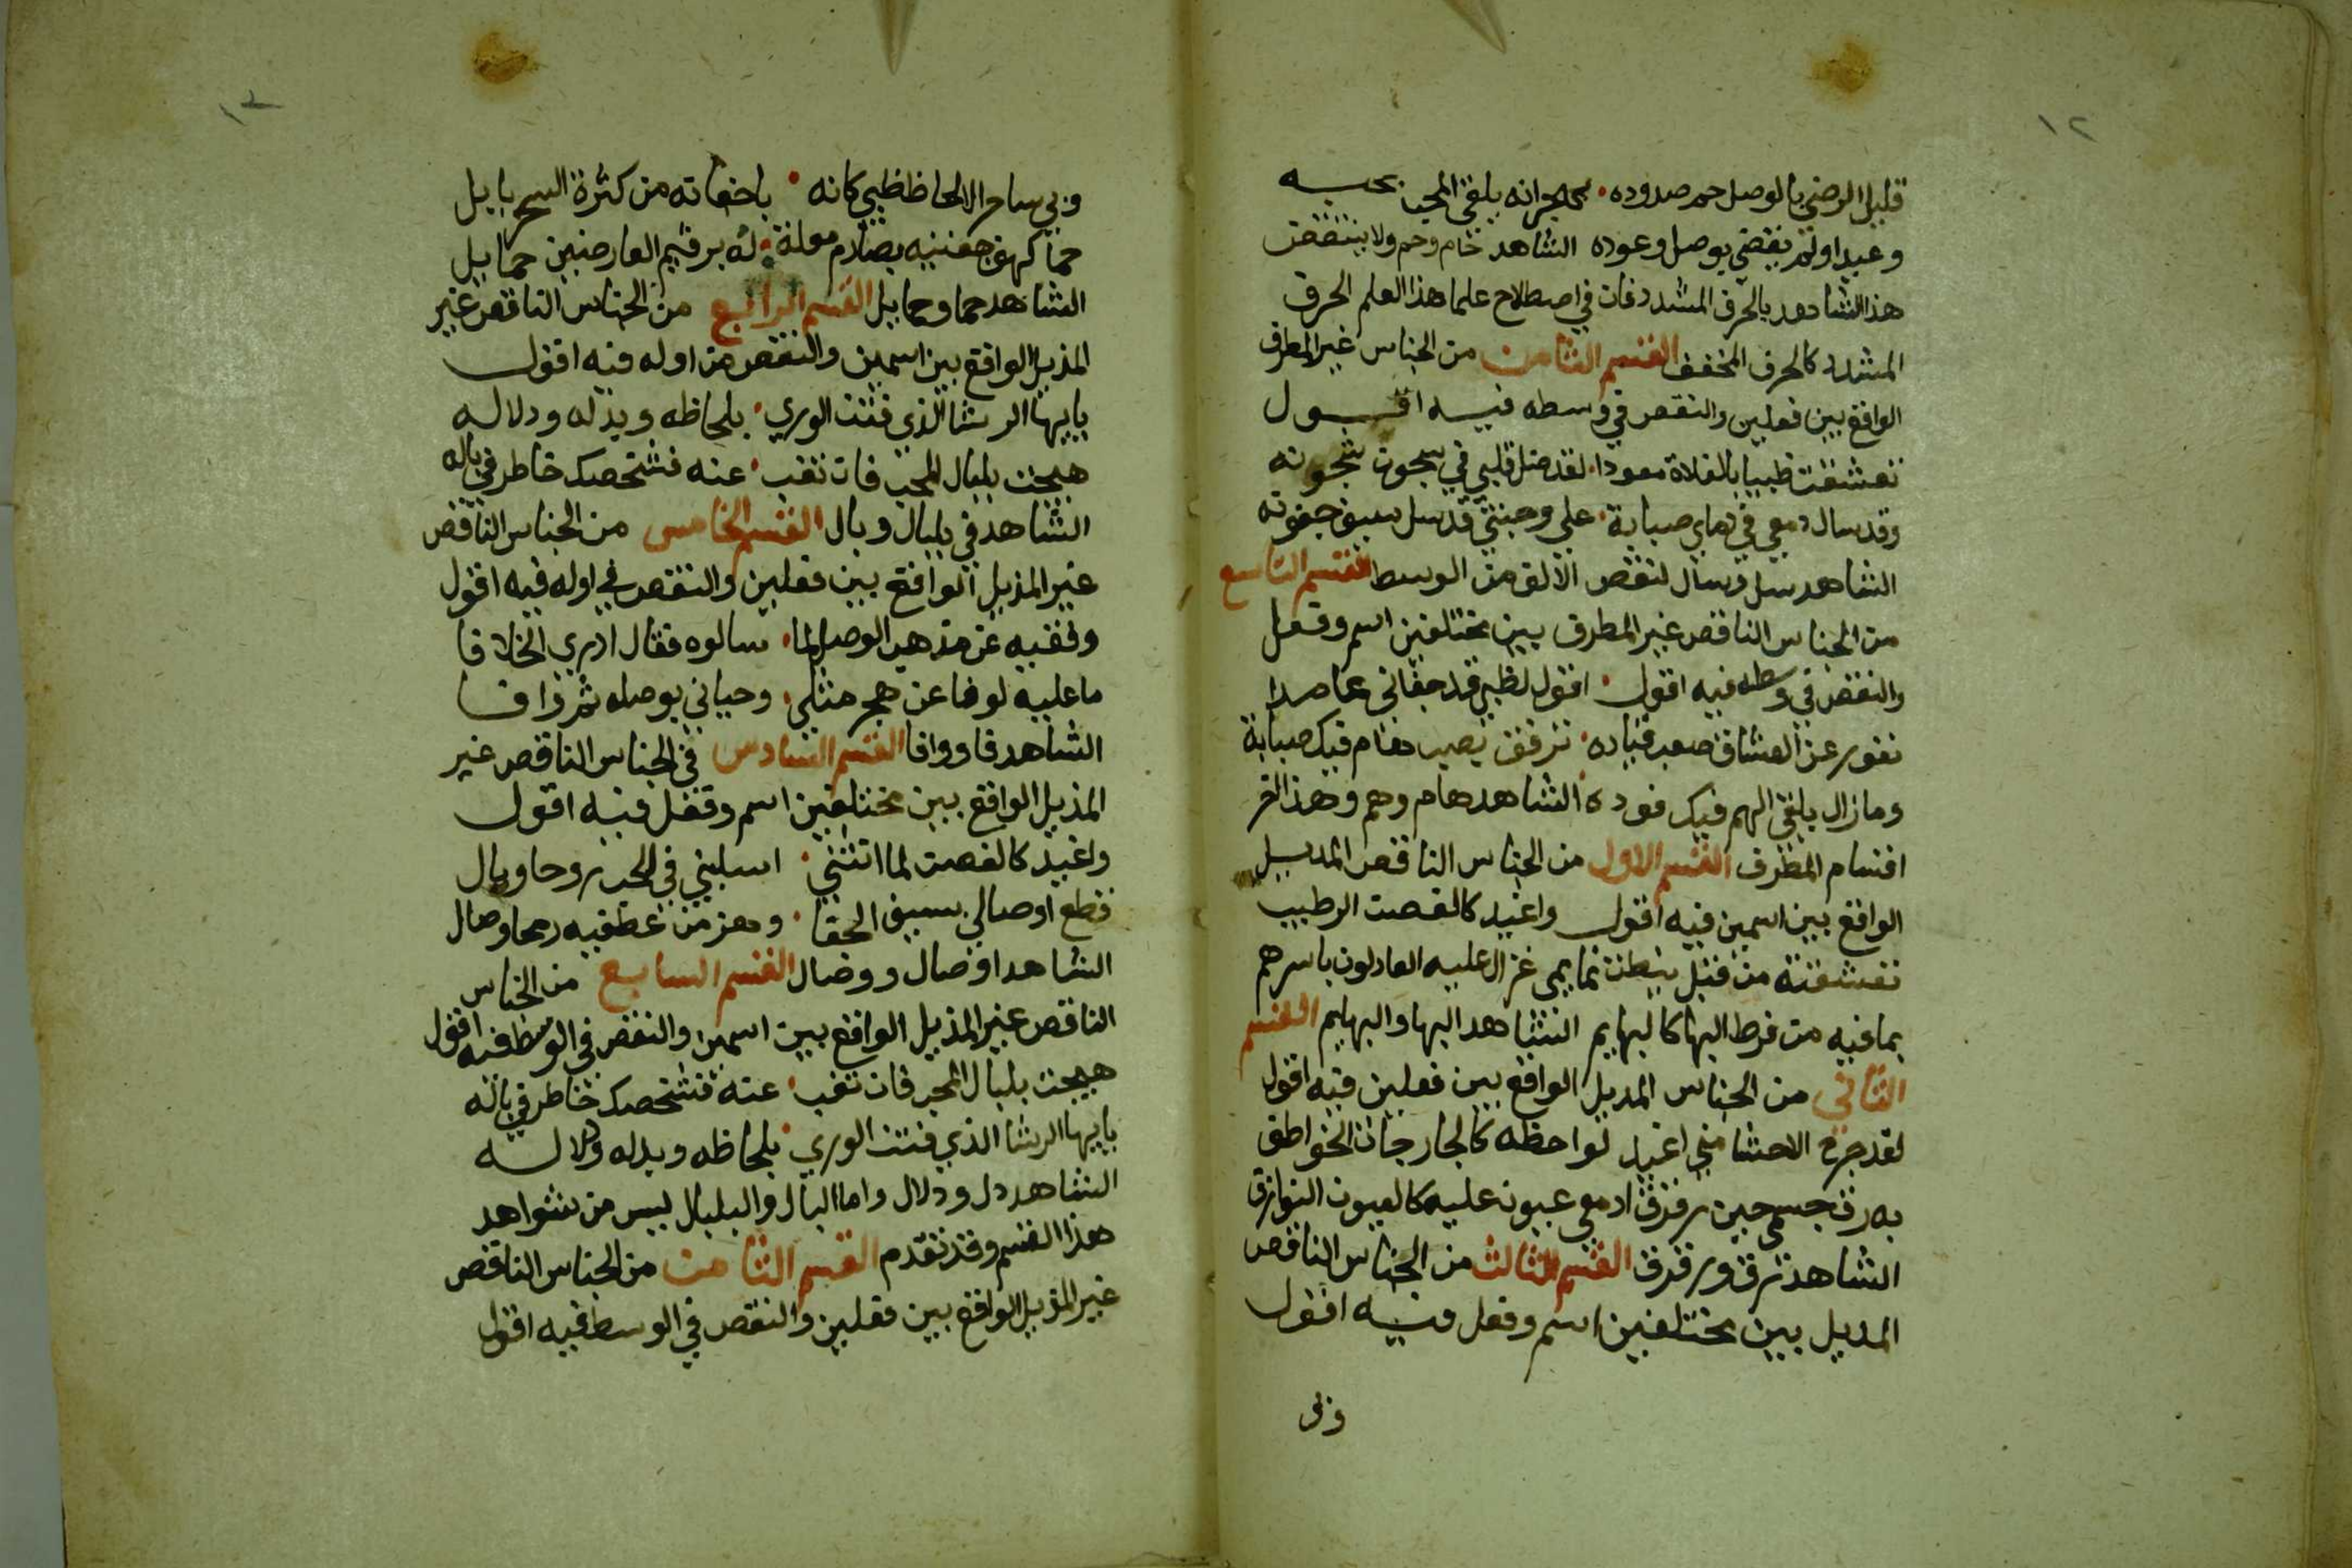 ١٢
قليل الرضي بالوصل حم صدوده بهجرانه يلقي المحب بحسبه
وعيدا ولم يقضي بوصل وعوده الشاهد حام وحم ولا ينتقض
هذا الشاهد بالحرف المشدد فان في اصطلاح علما هذا العلم الحرف
المشدد كالحرف المخفف القسم الثامن من الجناس غير المطرف
الواقع بين فعلين والنقص في وسطه فيه اقول
تعشقت ظبيا بالفلاة معودا لقد ضل قلبي في سجون شجونه
وقد سال دمعي في هواي صبابة علي وجنتي قد سل سيف جفونه
الشاهد سل وسال لنقص الالف من الوسط القسم التاسع
من الجناس الناقص غير المطرف بين مختلفين اسم وفعل
والنقص في وسطه فيه اقول اقول لظبي قد جفاني عامدا
نفور عن العشاق صعب قياده ترفق بصب هام فيك صبابة
ومازال يلقي الهم فيك فوده الشاهد هام وهم وهذا اخر
اقسام المطرف القسم الاول من الجناس الناقص المديل
الواقع بين اسمين فيه اقول واغيد كالغصن الرطيب
تعشقته من قبل نيطت تمايمي غزال عليه العادلون باسرهم
بمافيه من فرط البها كالبهايم الشاهد البها والبهايم القسم
الثاني من الجناس المديل الواقع بين فعلين فيه اقول
لقد جرح الاحشا مني اغيد لواحظه كالجارحات الخواطف
به رق جسمي حين رقرق ادمعي عيون عليه كالعيون الذوارف
الشاهد رق ورقرق القسم الثالث من الجناس الناقص
المديل بين مختلفين اسم وفعل فيه اقول
وبي
١٣
وبي ساحر الالحاظ ظبي كانه باجفانه من كثرة السحر بابل
حما كهف جفنيه بصارم مقلة له برقيم العارضين حمايل
الشاهد حما وحمايل القسم الرابع من الجناس الناقص غير
المذيل الواقع بين اسمين والنقص من اوله فيه اقول
يايها الرشا الذي فتن الوري بلحاظه وبدله ودلاله
هيجت بلبال المحب فان تغب عنه فشخصك خاطر في باله
الشاهد في بلبال وبال القسم الخامس من الجناس الناقص
غير المذيل الواقع بين فعلين والنقص في اوله فيه اقول
وفقيه عن مذهب الوصل لما سالوه فقال ادري الخلافا
ما عليه لو فا عن هجر مثلي وحياني بوصله ثم وافا
الشاهد فا ووافا القسم السادس في الجناس الناقص غير
المذيل الواقع بين مختلفين اسم وفعل فيه اقول
واغيد كالغصن لما انثني اسلبني في الحب روحا وبال
قطع اوصالي بسيف الجفا وهز من عطفيه رمحا وصال
الشاهد اوصال ووصال القسم السابع من الجناس
الناقص غير المذيل الواقع بين اسمين والنقص في الوسط فيه اقول
هيجت بلبال المحب فان تغب عنه فشخصك خاطر في باله
يايها الرشا الذي فتن الوري بلحاظه وبدله ودلاله
الشاهد دل ودلال واما البال والبلبال ليس من شواهد
هذا القسم وقد تقدم القسم الثامن من الجناس الناقص
غير المذيل الواقع بين فعلين والنقص في الوسط فيه اقول